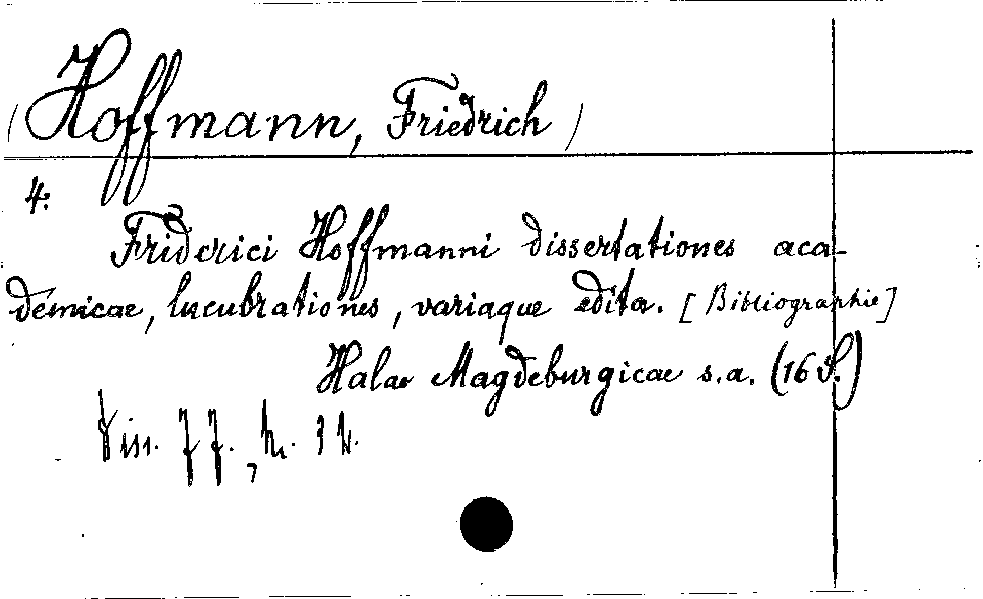 (Hoffmann, Friedrich)
4.
Friderici Hoffmanni dissertationes aca-
demicae, lucubrationes, variaque edita. [Bibliographie]
Halae Magdeburgicae s.a. (16 S.)
Diss. 77., Nr.